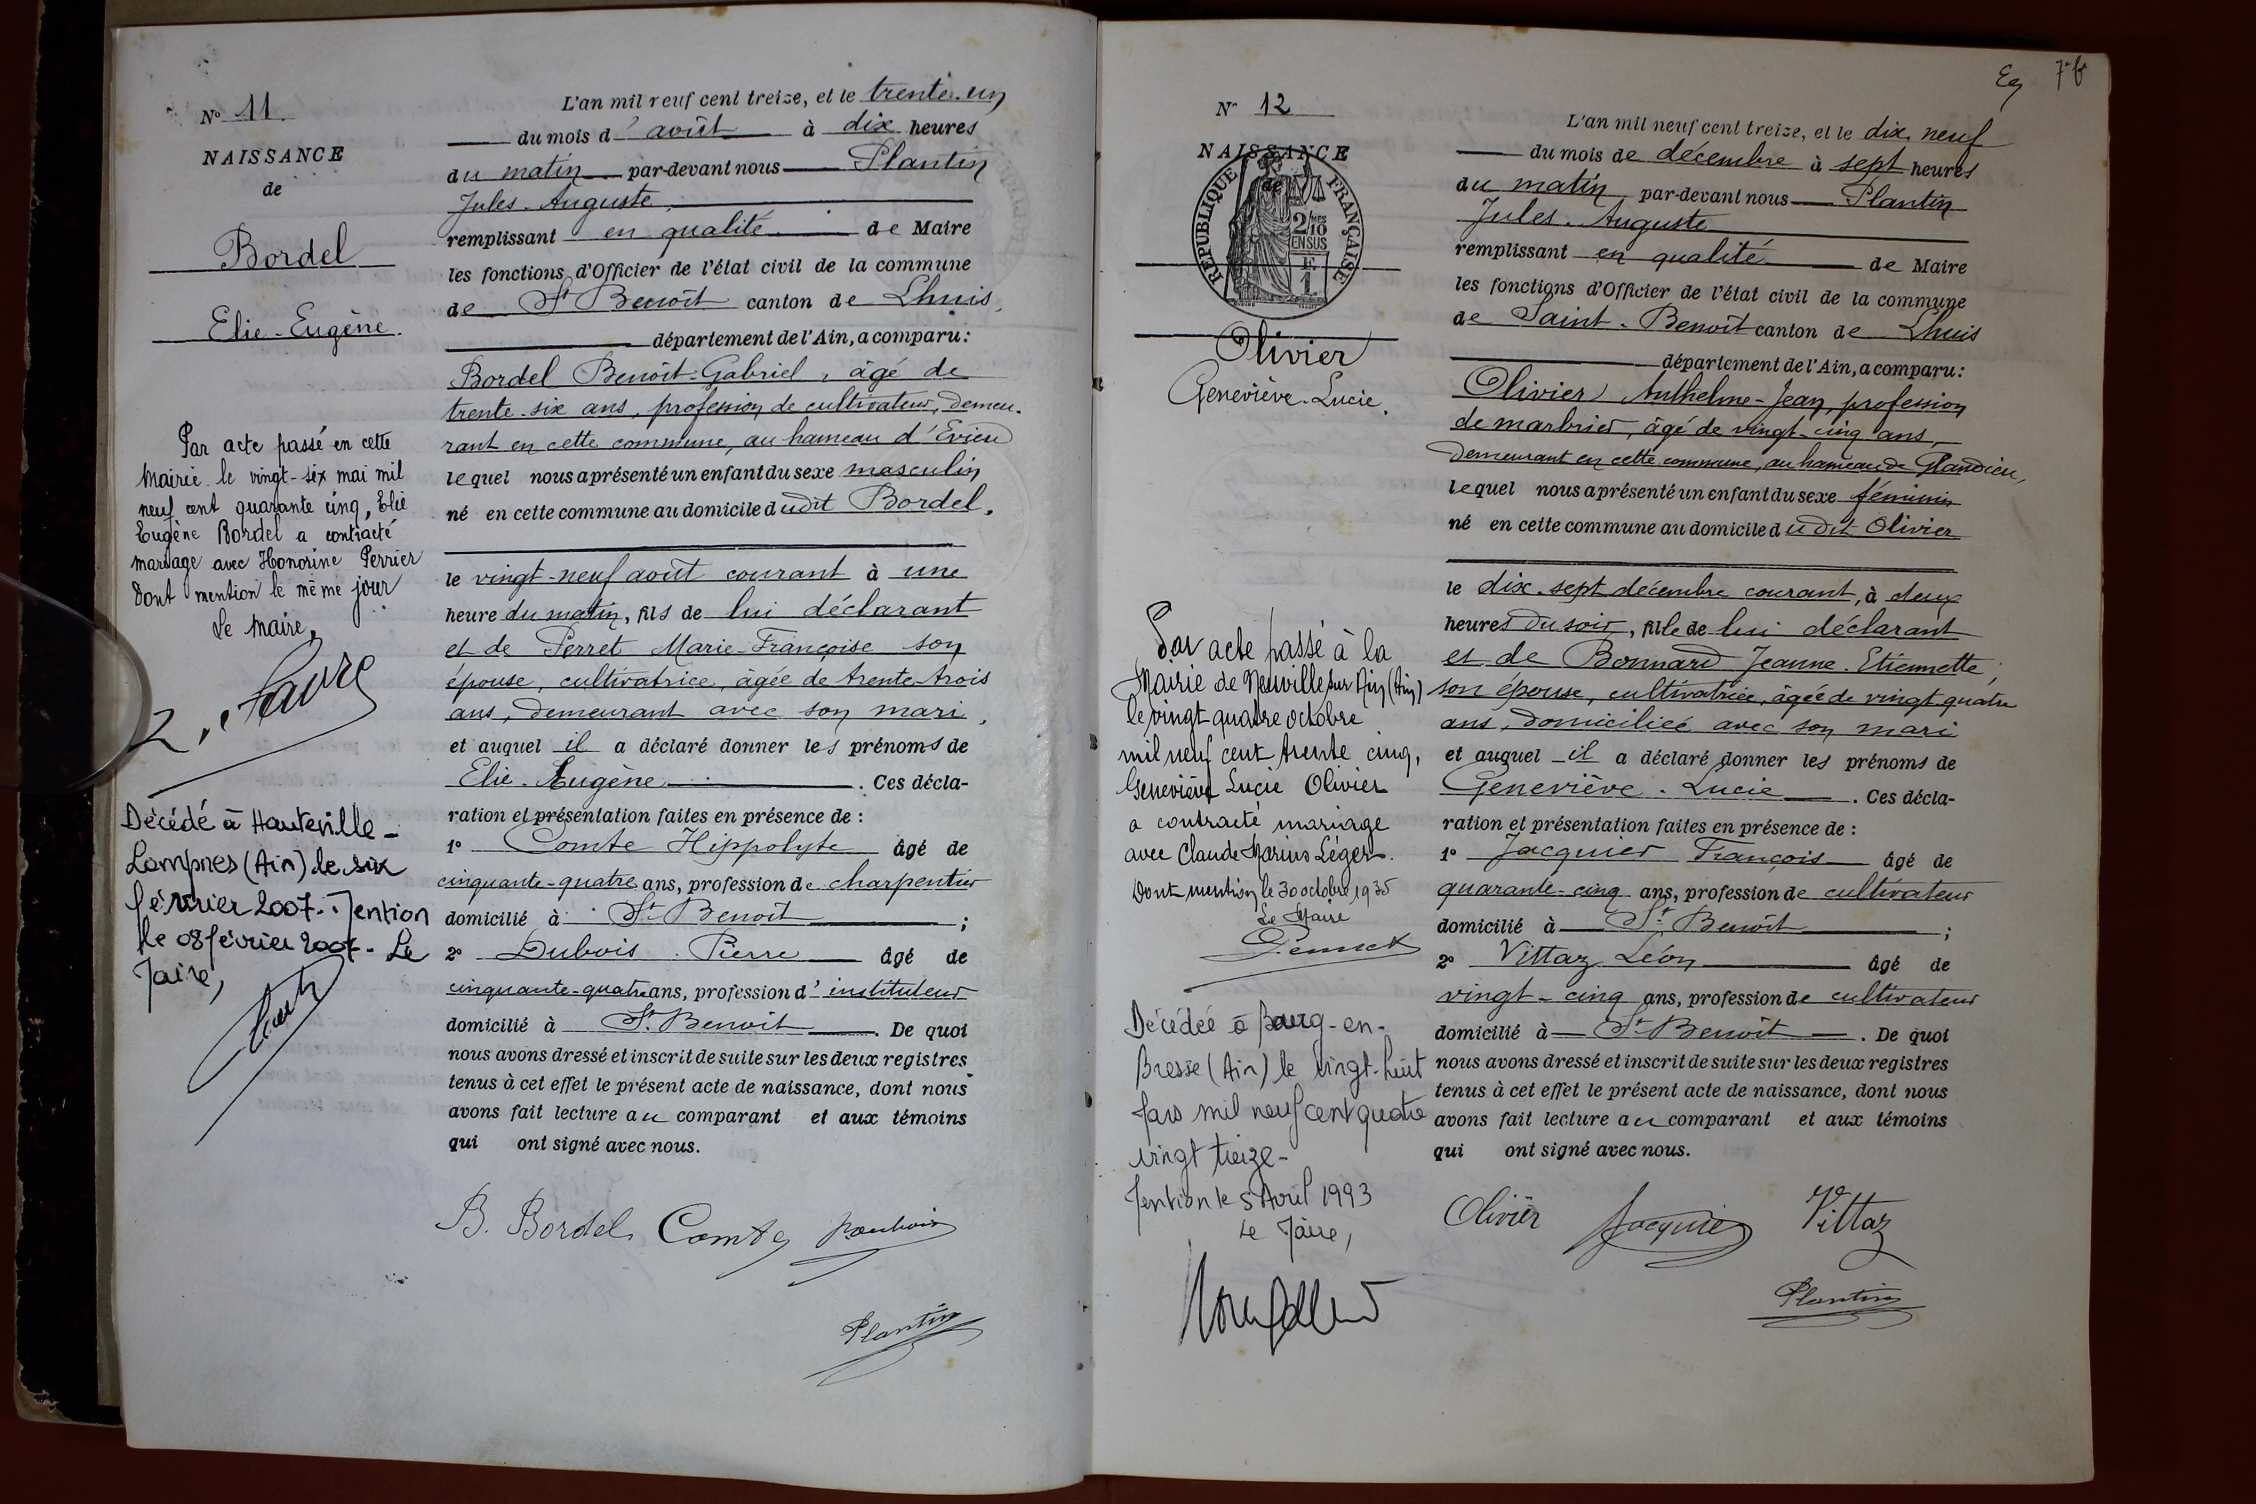 N° 11
NAISSANCE
de
Bordel
Elie-Eugène.
Par acte passé en cette
Mairie le vingt-six mai mil
neuf cent quarante cinq, Elie
Eugène Bordel a contracté
mariage avec Honorine Perrier
Dont mention le même jour
Le Maire,
Décédé à Hauteville-
Lompnes (Ain) le six
février 2007. Mention
le 08 février 2007. Le
Maire,
L'an mil neuf cent treize, et le trente-un
du mois d'août à dix heures
du matin par-devant nous Plantin
Jules-Auguste,
remplissant en qualité de Maire
les fonctions d'Officier de l'état civil de la commune
de St Benoît canton de Lhuis,
département de l'Ain, a comparu:
Bordel Benoît-Gabriel, âgé de
trente-six ans, profession de cultivateur, demeu-
rant en cette commune, au hameau d'Evieu
lequel nous a présenté un enfant du sexe masculin
né en cette commune au domicile dudit Bordel,
le vingt-neuf août courant à une
heure du matin, fils de lui déclarant
et de Perret Marie-Françoise son
épouse, cultivatrice, âgée de trente-trois
ans, demeurant avec son mari,
et auquel il a déclaré donner les prénoms de
Elie-Eugène. Ces décla-
ration et présentation faites en présence de :
1° Comte Hippolyte âgé de
cinquante-quatre ans, profession de charpentier
domicilié à St Benoît ;
2° Dubois Pierre âgé de
cinquante-quatre ans, profession d'instituteur
domicilié à St Benoît. De quoi
nous avons dressé et inscrit de suite sur les deux registres
tenus à cet effet le présent acte de naissance, dont nous
avons fait lecture au comparant et aux témoins
qui ont signé avec nous.
B. Bordel Comte
Plantin
7
N° 12
NAISSANCE
de
RÉPUBLIQUE FRANÇAISE
2/10
EN SUS
Olivier
Geneviève-Lucie.
Par acte passé à la
Mairie de Neuville sur Ain (Ain)
le vingt quatre octobre
mil neuf cent trente cinq,
Geneviève Lucie Olivier
a contracté mariage
avec Claude Marius Léger.
Dont mention le 30 octobre 1935
Le Maire
Décédée à Bourg-en-
Bresse (Ain) le vingt-huit
Mars mil neuf cent quatre
vingt treize-
Mention le 5 Avril 1993
Le Maire,
L'an mil neuf cent treize, et le dix-neuf
du mois de décembre à sept heures
du matin par-devant nous Plantin
Jules-Auguste
remplissant en qualité de Maire
les fonctions d'Officier de l'état civil de la commune
de Saint-Benoît canton de Lhuis
département de l'Ain, a comparu:
Olivier Anthelme-Jean, profession
de marbrier, âgé de vingt-cinq ans,
demeurant en cette commune, au hameau de Glandieu,
lequel nous a présenté un enfant du sexe féminin
né en cette commune au domicile dudit Olivier
le dix-sept décembre courant, à deux
heures du soir, fille de lui déclarant
et de Bonnard Jeanne-Etiennette,
son épouse, cultivatrice, âgée de vingt-quatre
ans, domiciliée avec son mari
et auquel il a déclaré donner les prénoms de
Geneviève-Lucie. Ces décla-
ration et présentation faites en présence de :
1° Jacquier François âgé de
quarante-cinq ans, profession de cultivateur
domicilié à St Benoît ;
2° Vittaz Léon âgé de
vingt-cinq ans, profession de cultivateur
domicilié à St Benoît. De quoi
nous avons dressé et inscrit de suite sur les deux registres
tenus à cet effet le présent acte de naissance, dont nous
avons fait lecture au comparant et aux témoins
qui ont signé avec nous.
Olivier Jacquier Vittaz
Plantin